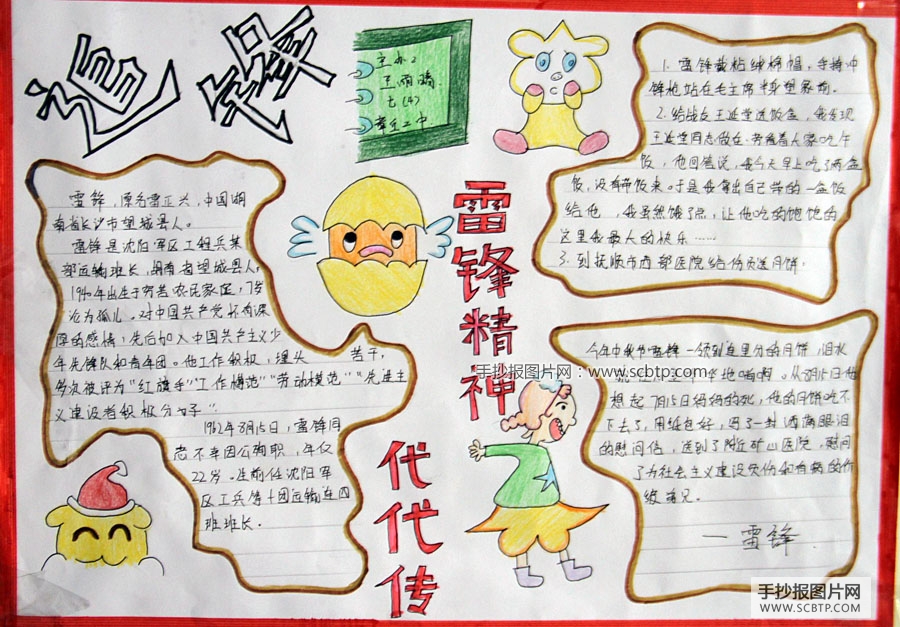 追锋
主办：
王雨晴
七(4)
雷锋精神
代代传
雷锋，原名雷正兴，中国湖
南省长沙市望城县人。
雷锋是沈阳军区工程兵某
部运输班长，湖南省望城县人。
1940年出生于穷苦农民家庭，7岁
沦为孤儿。对中国共产党怀有深
厚的感情，先后加入中国共产主义少
年先锋队和青年团。他工作积极，埋头 苦干，
多次被评为“红旗手”“工作模范”“劳动模范”“先进主
义建设者积极分子”。
1962年8月15日，雷锋同
志不幸因公殉职，年仅
22岁。生前任沈阳军
区工兵第十团运输连四
班班长。
1. 雷锋戴棉绒棉帽，手持冲
锋枪站在毛主席半身塑象前。
2. 给战友王延堂送饭盒，我发现
王延堂同志做在旁看着大家吃午
饭，他回答说，我今天早上吃了两盒
饭，没有带饭来。于是我拿出自己带的一盒饭
给他，我虽然饿了点，让他吃的饱饱的
这里我最大的快乐……
3. 到抚顺市西部医院给伤员送月饼，
今年中秋节雷锋一领到连里分的月饼，泪水
想起7月15日妈妈的死，他的月饼吃不
下去了，用纸包好，写了一封洒满眼泪
的慰问信，送到了附近矿山医院，慰问
了为社会主义建设负伤和有病的伤
一 雷锋
手抄报图片网：www.scbtp.com
手抄报图片网
WWW.SCBTP.COM